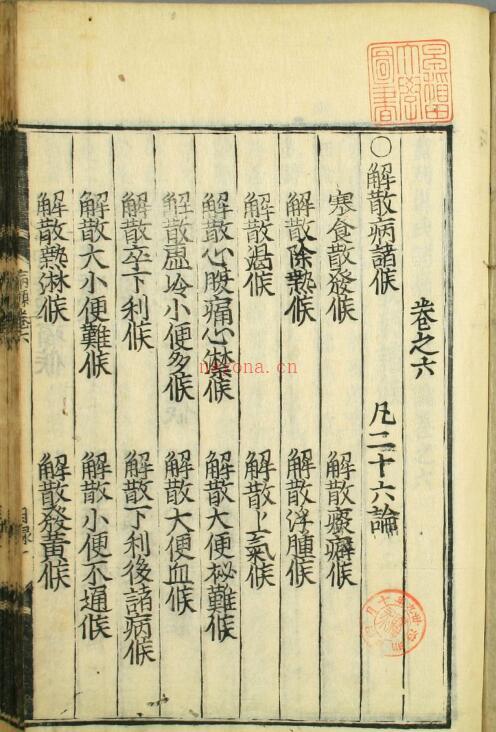 早稻田
大學
圖書
卷之六
○解散病諸候 凡二十六論
寒食散發候 解散痰癖候
解散除熱候 解散浮腫候
解散渴候 解散上氣候
解散心腹痛心㦗候 解散大便秘難候
解散虛冷小便多候 解散大便血候
解散卒下利候 解散下利後諸病候
解散大小便難候 解散小便不通候
解散熱淋候 解散發黃候
卷六
目録一
nayona.cn